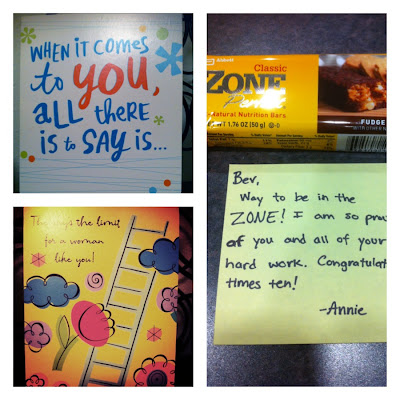 WHEN IT COMES
to YOU,
ALL tHERE
IS to SAY IS...
Classic
ZONE
Natural Nutrition Bars
1.76 OZ (50 g)
FUDGE
Bev,
Way to be in the
ZONE! I am so prou
of you and all of your
hard work. Congratulat
times ten!
-Annie
The sky's the limit
for a woman
like you!